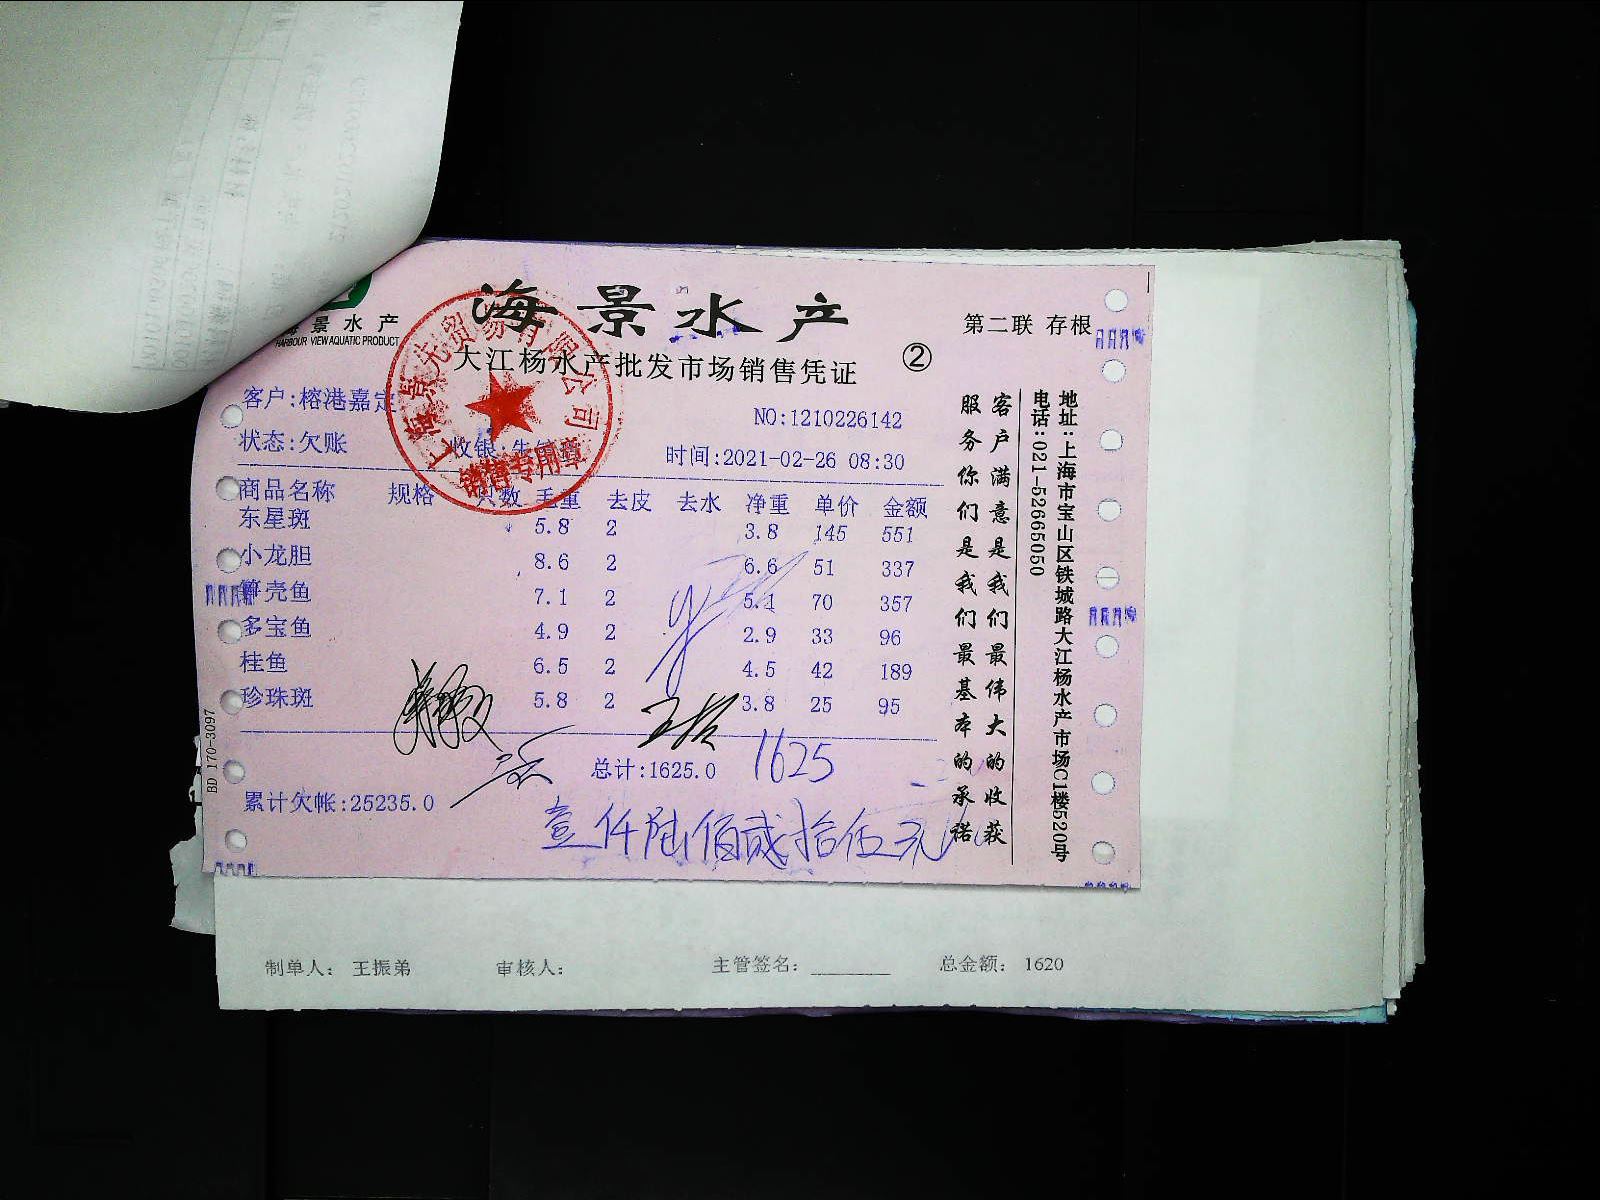 海景水产
HARBOUR VIEW AQUATIC PRODUCT
海景水产
大江杨水产批发市场销售凭证
②
第二联 存根
上海景先贸易有限公司
销售专用章
客户:榕港嘉定
NO:1210226142
状态:欠账
收银:朱
时间:2021-02-26 08:30
商品名称 规格 只数 毛重 去皮 去水 净重 单价 金额
东星斑 5.8 2 3.8 145 551
小龙胆 8.6 2 6.6 51 337
笋壳鱼 7.1 2 5.1 70 357
多宝鱼 4.9 2 2.9 33 96
桂鱼 6.5 2 4.5 42 189
珍珠斑 5.8 2 3.8 25 95
总计:1625.0
1625
累计欠帐:25235.0
壹仟陆佰贰拾伍元
客户满意是我们最伟大的收获
服务你们是我们最基本的承诺
地址:上海市宝山区铁城路大江杨水产市场C1楼520号
电话:021-52665050
BD 170-3097
制单人: 王振弟 审核人: 主管签名: 总金额: 1620